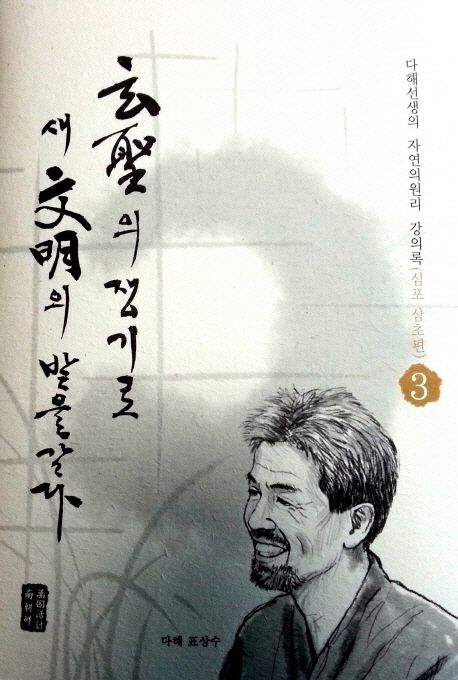 다해선생의 자연의원리 강의록(심포 삼초편)
3
玄聖의 쟁기로
새 文明의 밭을갈다
萬國活計
南朝鮮
다해 표상수